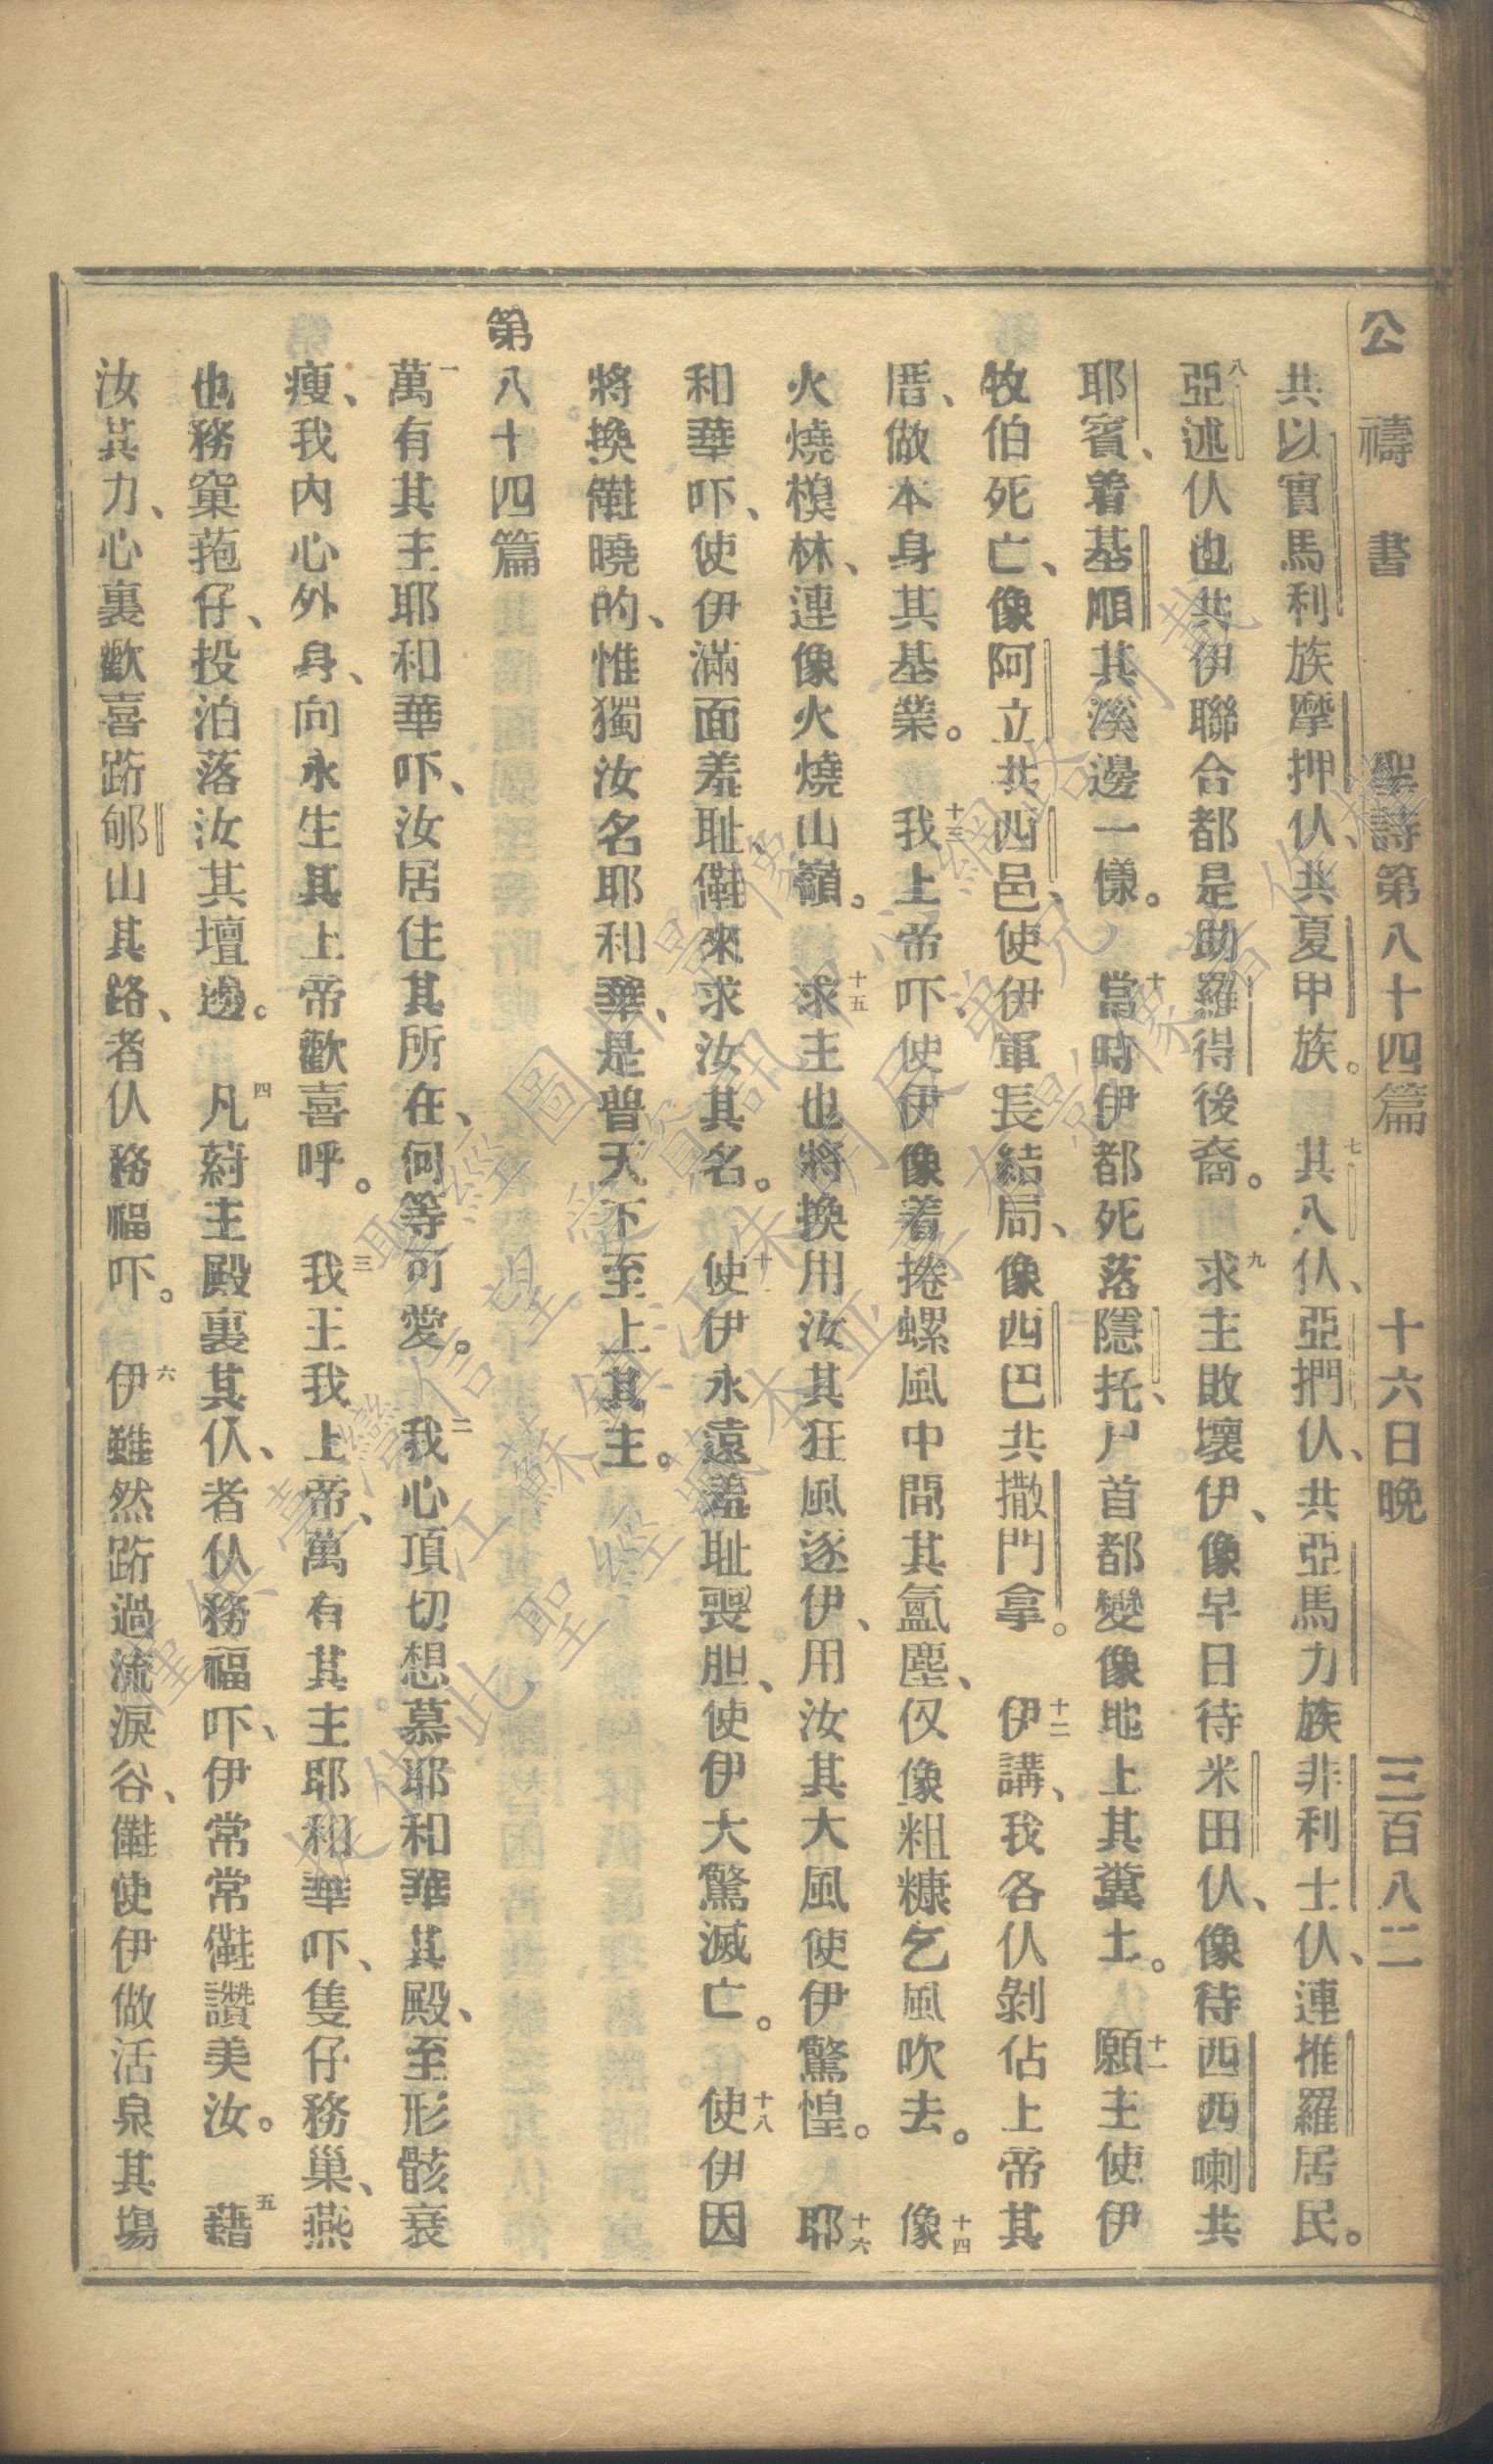 公禱書 聖詩第八十四篇 十六日晚 三百八二
共以實馬利族摩押仈、共夏甲族。七其八仈、亞捫仈、共亞馬力族非利士仈、連推羅居民。
八亞述仈也共伊聯合都是助羅得後裔。九求主敗壞伊、像早日待米田仈、像待西西喇共
耶賓、着基順其溪邊一樣。十當時伊都死落隱托、尸首都變像地上其糞土。十一願主使伊
牧伯死亡、像阿立共西邑、使伊軍長結局、像西巴共撒門拿。十二伊講、我各仈剝佔上帝其
厝、做本身其基業。十三我上帝吓使伊像着捲螺風中間其氳塵、仅像粗糠乞風吹去。十四像
火燒模林、連像火燒山嶺。十五求主也將換用汝其狂風逐伊、用汝其大風使伊驚惶。十六耶
和華吓、使伊滿面羞耻、㑚來求汝其名。十使伊永遠羞耻喪胆、使伊大驚滅亡。十八使伊因
將換㑚曉的、惟獨汝名耶和華、是普天下至上其主。
第八十四篇
一萬有其主耶和華吓、汝居住其所在、何等可愛。二我心頂切想慕耶和華其殿、至形骸衰
瘦、我內心外身、向永生其上帝歡喜呼。三我王我上帝、萬有其主耶和華吓、隻仔務巢、燕
也務窠菢仔、投泊落汝其壇邊。四凡蔚主殿裏其仈、者仈務福吓、伊常常㑚讚美汝。五藉
汝其力、心裏歡喜跓郇山其路、者仈務福吓。六伊雖然跓過流淚谷、㑚使伊做活泉其塲